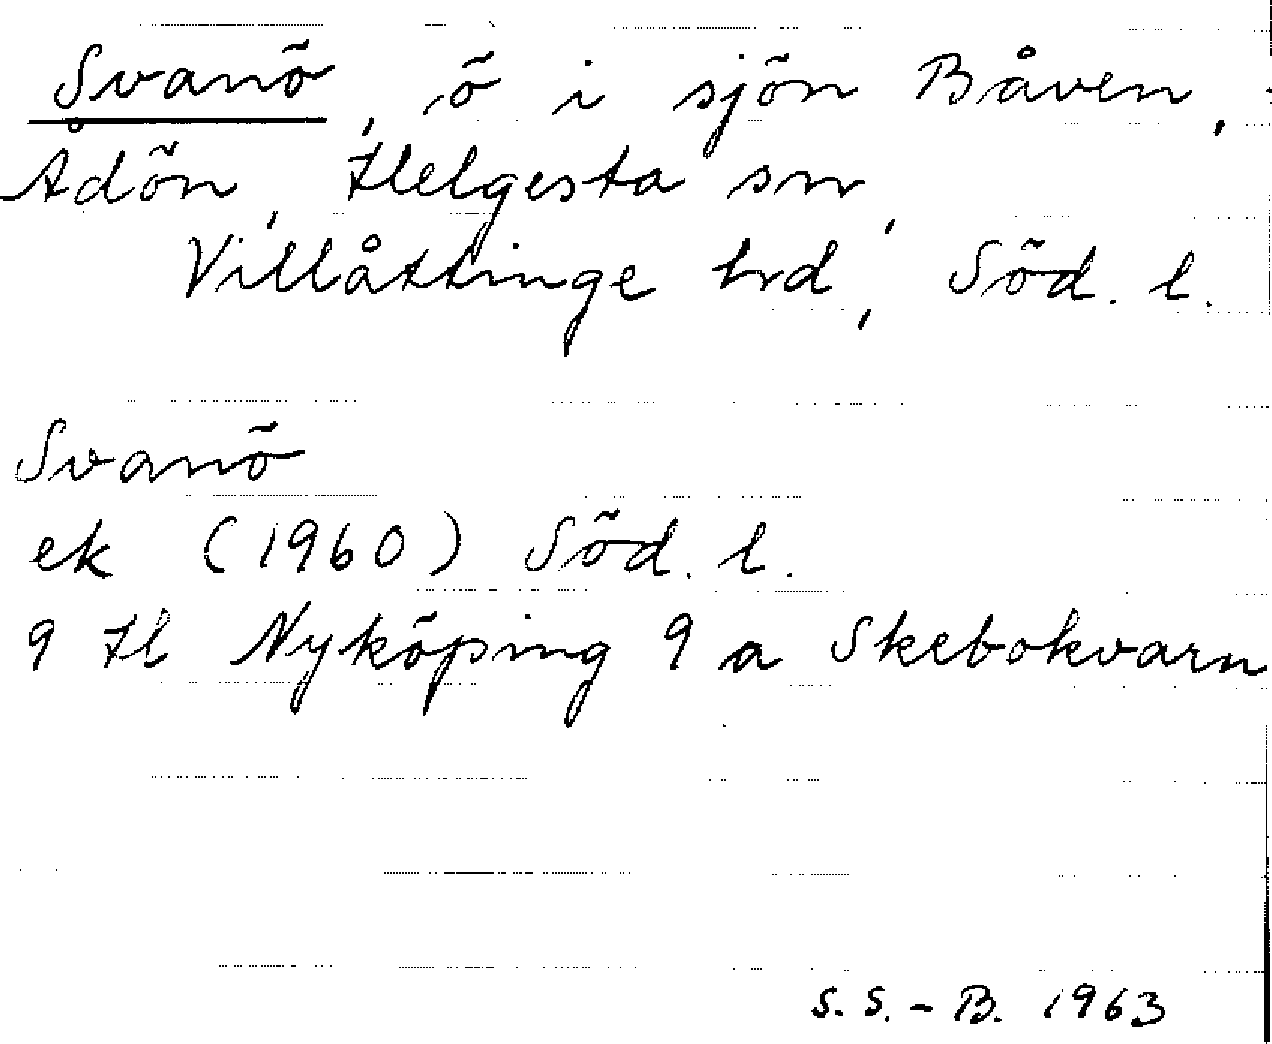 Svanö, ö i sjön Båven,
Ådön, Helgesta sn,
Villåttinge hrd, Söd. l.
Svanö
ek (1960) Söd. l.
9 H l Nyköping 9 a Skebokvarn
S. S. - B. 1963